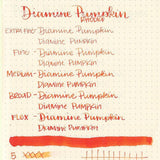 Diamine Pumpkin
EXTRA FINE - Diamine Pumpkin
DIAMINE PUMPKIN
FINE - Diamine Pumpkin
DIAMINE PUMPKIN
MEDIUM - Diamine Pumpkin
DIAMINE PUMPKIN
BROAD - Diamine Pumpkin
DIAMINE PUMPKIN
FLEX - Diamine Pumpkin
DIAMINE PUMPKIN
5